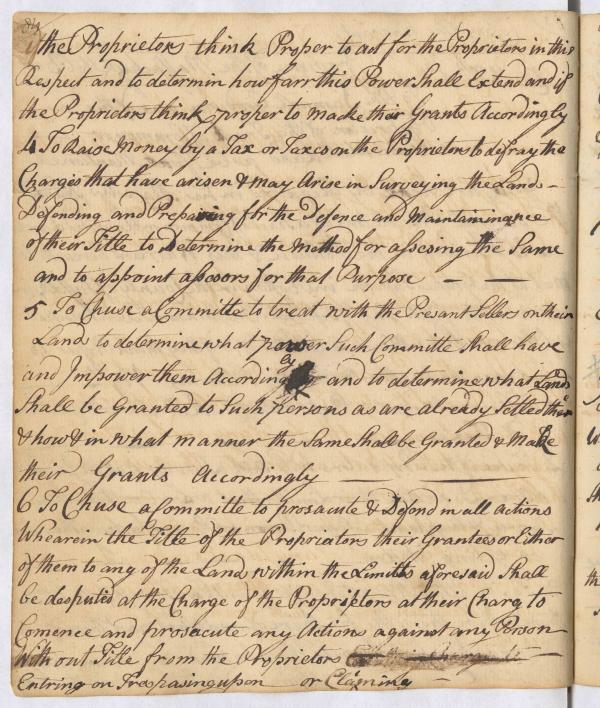 84
if the Proprietors think Proper to act for the Proprietors in this
Respect and to determin how farr this Power Shall Extend and if
the Proprietors think proper to make their Grants Accordingly
4 To Raise Money by a Tax or Taxes on the Proprietors to defray the
Charges that have arisen & may Arise in Surveying the Lands
Defending and Prepairing for the Defence and Maintainingnce
of their Title to Determine the Method for assesing the Same
and to appoint assessors for that Purpose
5 To Chuse a Committe to treat with the Presant Setlers on their
Land to determine what power Such Committe Shall have
and Impower them According ly and to determine what Lands
Shall be Granted to Such persons as are already Setled there
& how & in what manner the Same Shall be Granted & Make
their Grants Accordingly
6 To Chuse a Committe to prosacute & Defend in all Actions
Whearein the Title of the Propriators their Grantees or Either
of them to any of the Land within the Limitts aforesaid Shall
be desputed at the Charge of the Propriators at their Charg to
Comence and prosacute any Actions against any Person
With out Title from the Proprietors
Entring on Trespasing upon or Claiming